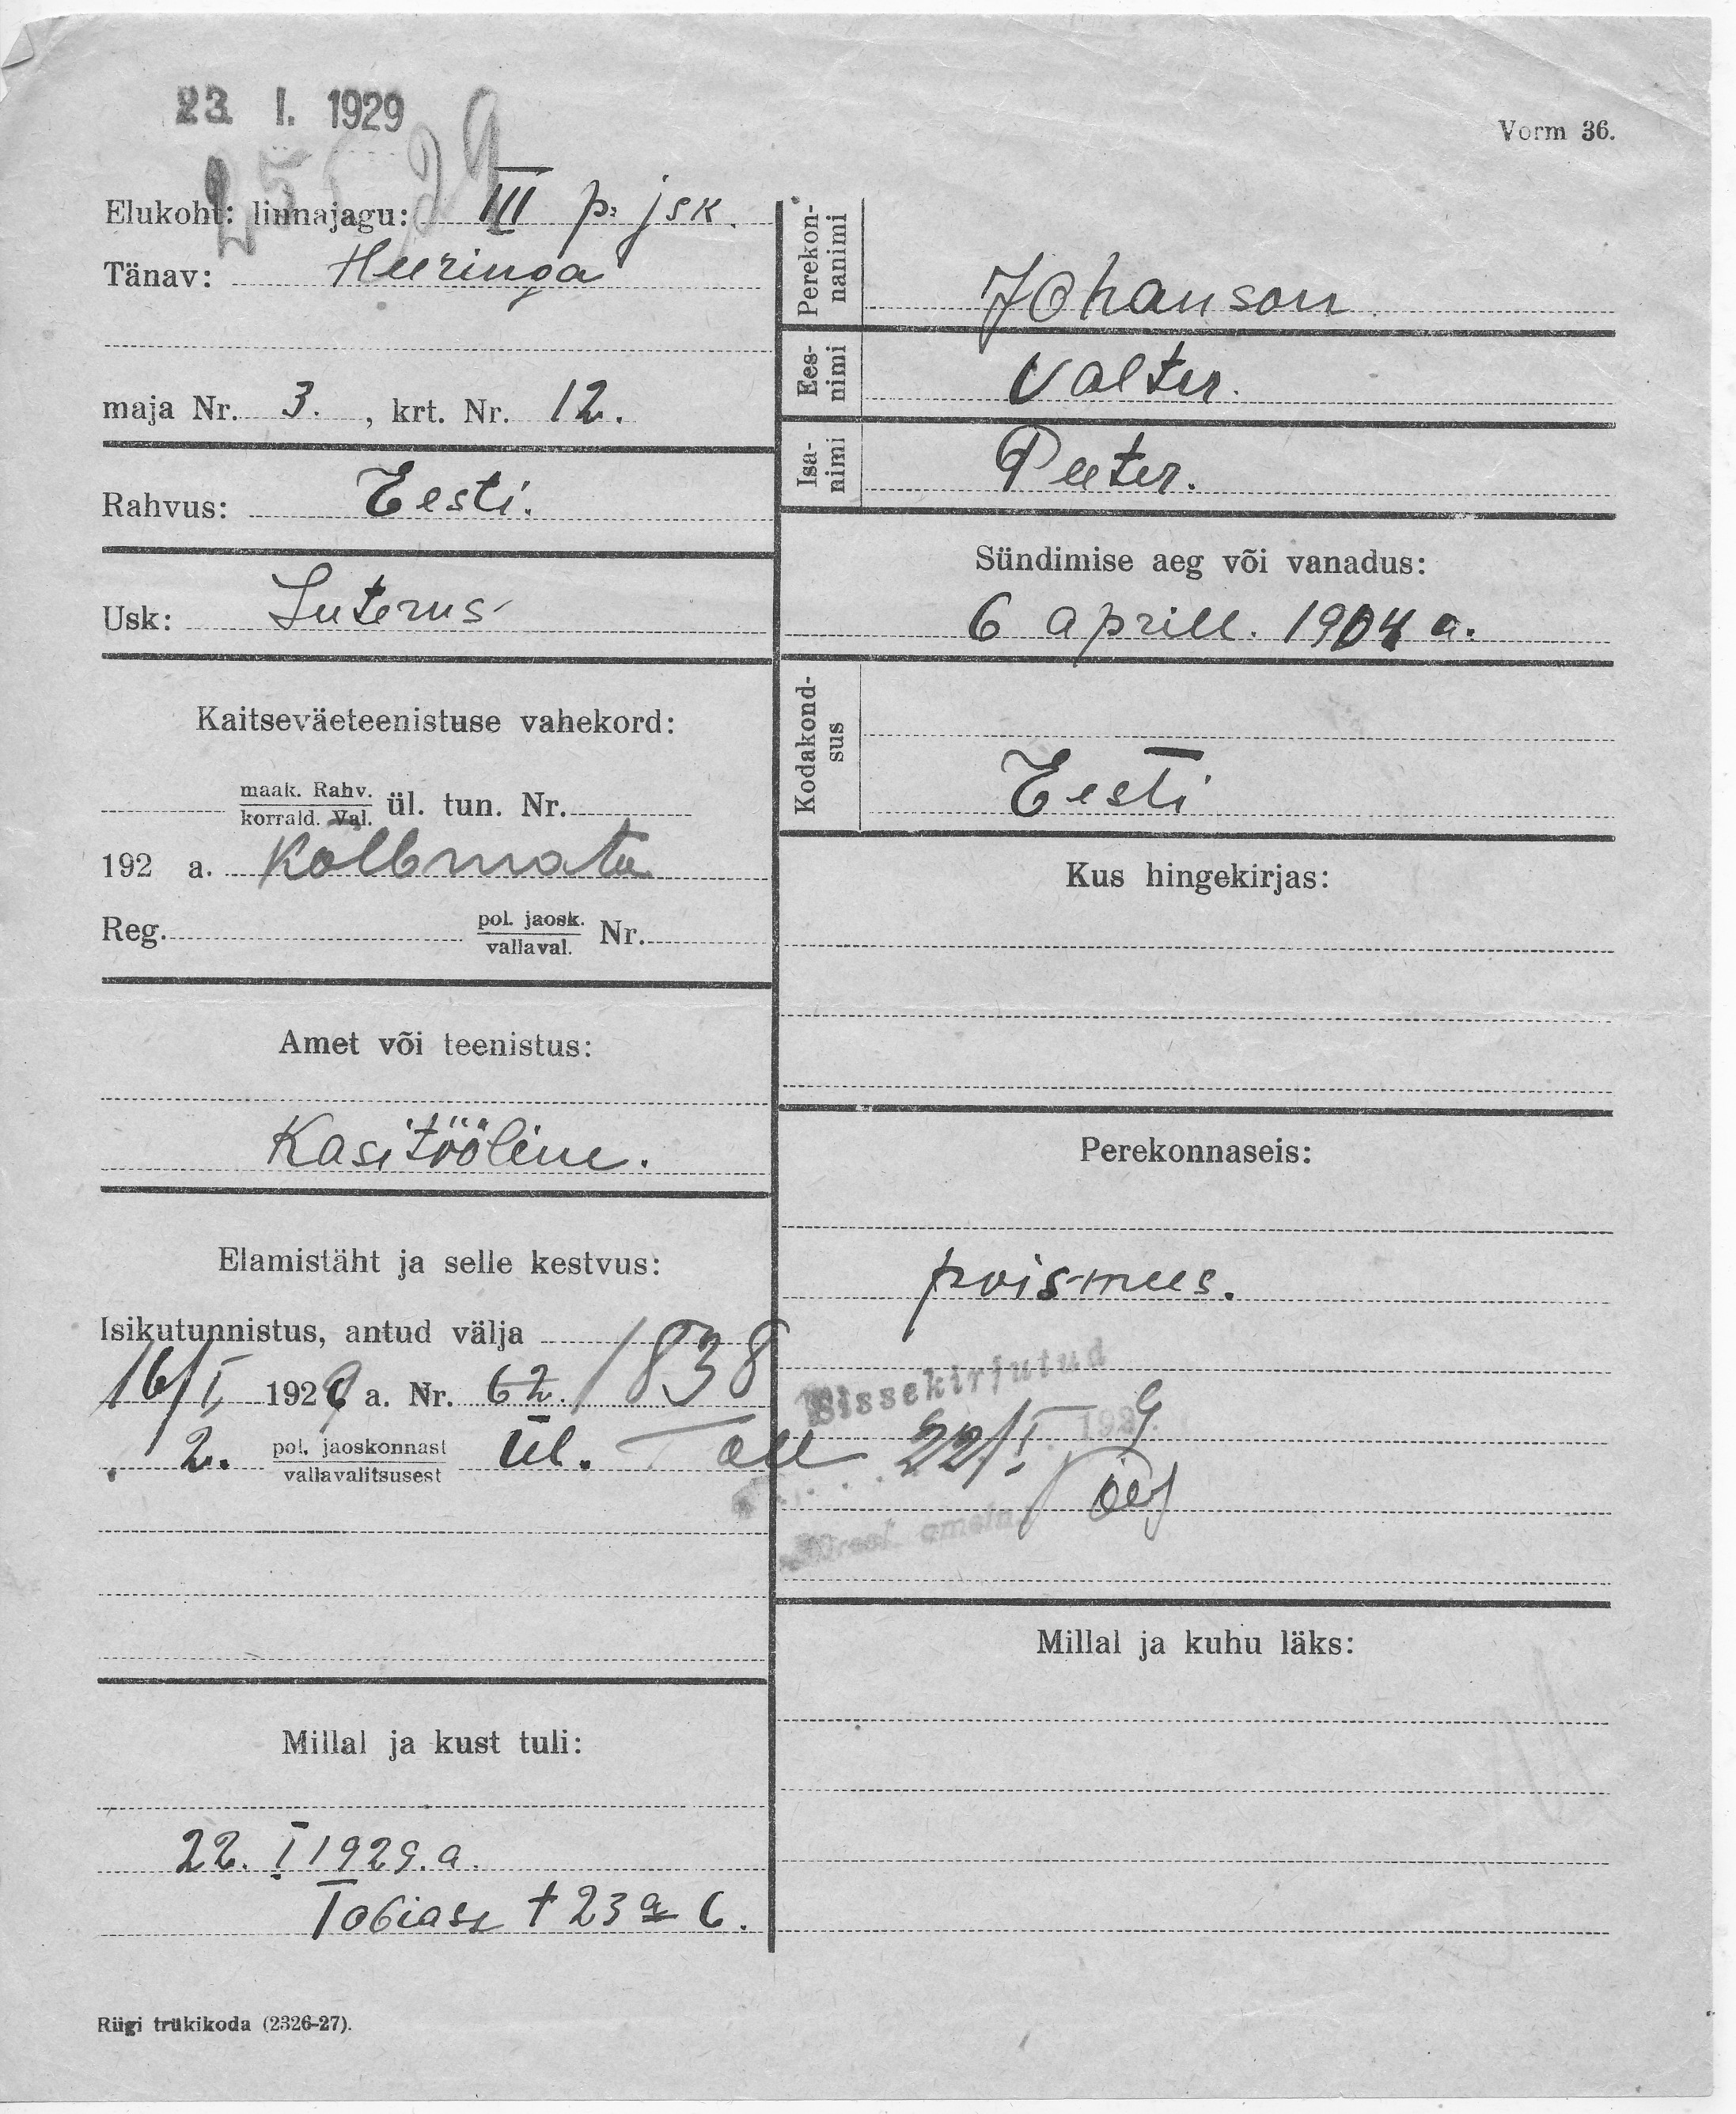 23. I. 1929
Vorm 36.
Elukoht: linnajagu: III p. jsk.
Tänav: Heeringa
maja Nr. 3. , krt. Nr. 12.
Rahvus: Eesti.
Usk: Luterus
Kaitseväeteenistuse vahekord:
maak. Rahv.
korrald. Val. ül. tun. Nr.
192 a. Kolbmata
Reg. pol. jaosk.
vallaval. Nr.
Amet või teenistus:
Kasitööline.
Elamistäht ja selle kestvus:
Isikutunnistus, antud välja 1838
16/I 1929 a. Nr. 62.
2. pol. jaoskonnast
vallavalitsusest Ül. Tall
Millal ja kust tuli:
22. I 1929. a.
Tobiase t 23a 6.
Riigi trükikoda (2326-27).
Perekonnanimi
Johanson
Eesnimi
Valter.
Isanimi
Peeter.
Sündimise aeg või vanadus:
6 aprill. 1904 a.
Kodakondsus
Eesti
Kus hingekirjas:
Perekonnaseis:
poismees.
Sissekirjutud
22/I 192 9
Millal ja kuhu läks: